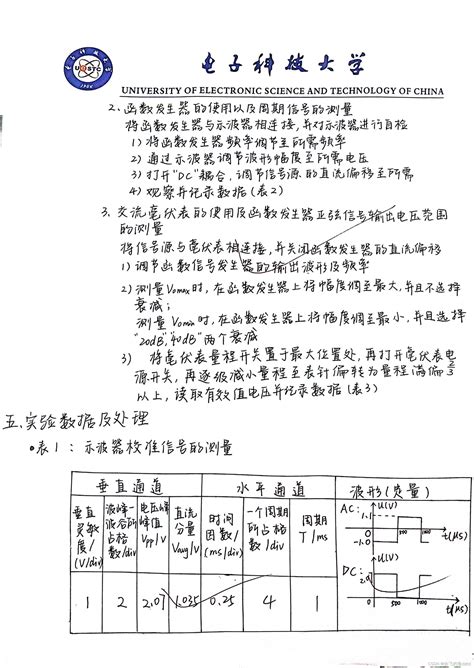 电子科技大学
UNIVERSITY OF ELECTRONIC SCIENCE AND TECHNOLOGY OF CHINA
2、函数发生器的使用以及周期信号的测量
将函数发生器与示波器相连接,并对示波器进行自检
1)将函数发生器频率调节至所需频率
2)通过示波器调节波形幅度至所需电压
3)打开"DC"耦合,调节信号源的直流偏移至所需
4)观察并记录数据(表2)
3、交流毫伏表的使用及函数发生器正弦信号输出电压范围
的测量
将信号源与毫伏表相连接,并关闭函数发生器的直流偏移
1)调节函数信号发生器的输出波形及频率
2)测量Vomax时,在函数发生器上将幅度调至最大,并且不选择
衰减;
测量Vomin时,在函数发生器上将幅度调至最小,并且选择
"20dB","40dB"两个衰减
3) 将毫伏表量程开关置于最大位置处,再打开毫伏表电
源开关,再逐级减小量程至表针偏转为量程满偏
以上,读取有效值电压并记录数据(表3)
五、实验数据及处理
•表1:示波器校准信号的测量
垂直通道 水平通道 波形(定量)
垂直灵敏度/(V/div) 波峰-波谷所占格数/div 电压峰峰值Vpp/V 直流分量Vavg/V 时间因数/(ms/div) 一个周期所占格数/div 周期T/ms
AC: u(V) 1.0 -1.0 500 1000 t(μs)
DC: u(V) 2.07 500 1000 t(μs)
1 2 2.07 1.035 0.25 4 1